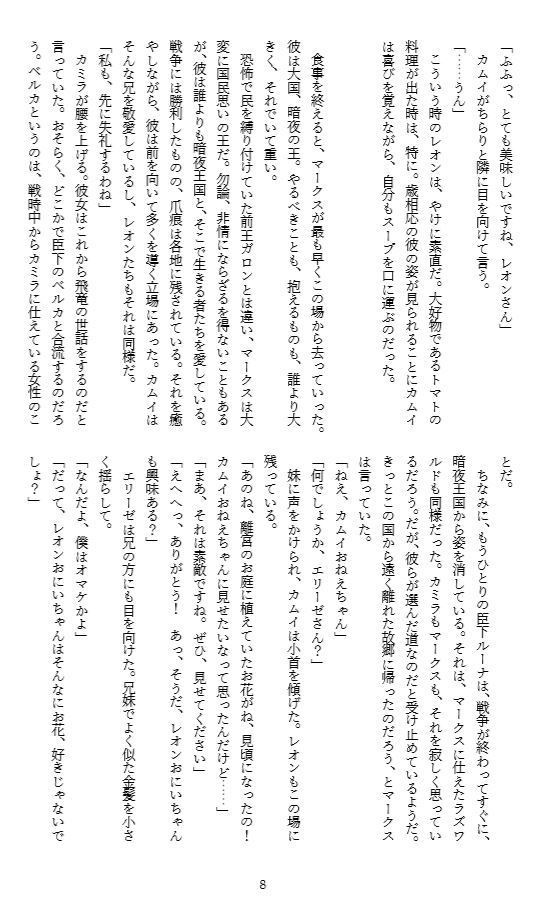 「ふふっ、とても美味しいですね、レオンさん」
　カムイがちらりと隣に目を向けて言う。
「……うん」
　こういう時のレオンは、やけに素直だ。大好物であるトマトの
料理が出た時は、特に。歳相応の彼の姿が見られることにカムイ
は喜びを覚えながら、自分もスープを口に運ぶのだった。
　食事を終えると、マークスが最も早くこの場から去っていった。
彼は大国、暗夜の王。やるべきことも、抱えるものも、誰より大
きく、それでいて重い。
　恐怖で民を縛り付けていた前王ガロンとは違い、マークスは大
変に国民思いの王だ。勿論、非情にならざるを得ないこともある
が、彼は誰よりも暗夜王国と、そこで生きる者たちを愛している。
戦争には勝利したものの、爪痕は各地に残されている。それを癒
やしながら、彼は前を向いて多くを導く立場にあった。カムイは
そんな兄を敬愛しているし、レオンたちもそれは同様だ。
「私も、先に失礼するわね」
　カミラが腰を上げる。彼女はこれから飛竜の世話をするのだと
言っていた。おそらく、どこかで臣下のベルカと合流するのだろ
う。ベルカというのは、戦時中からカミラに仕えている女性のこ
とだ。
　ちなみに、もうひとりの臣下ルーナは、戦争が終わってすぐに、
暗夜王国から姿を消している。それは、マークスに仕えたラズワ
ルドも同様だった。カミラもマークスも、それを寂しく思ってい
るだろう。だが、彼らが選んだ道なのだと受け止めているようだ。
きっとこの国から遠く離れた故郷に帰ったのだろう、とマークス
は言っていた。
「ねえ、カムイおねえちゃん」
「何でしょうか、エリーゼさん？」
　妹に声をかけられ、カムイは小首を傾げた。レオンもこの場に
残っている。
「あのね、離宮のお庭に植えていたお花がね、見頃になったの！
カムイおねえちゃんに見せたいなって思ったんだけど……」
「まあ、それは素敵ですね。ぜひ、見せてください」
「えへへっ、ありがとう！　あっ、そうだ、レオンおにいちゃん
も興味ある？」
　エリーゼは兄の方にも目を向けた。兄妹でよく似た金髪を小さ
く揺らして。
「なんだよ、僕はオマケかよ」
「だって、レオンおにいちゃんはそんなにお花、好きじゃないで
しょ？」
8